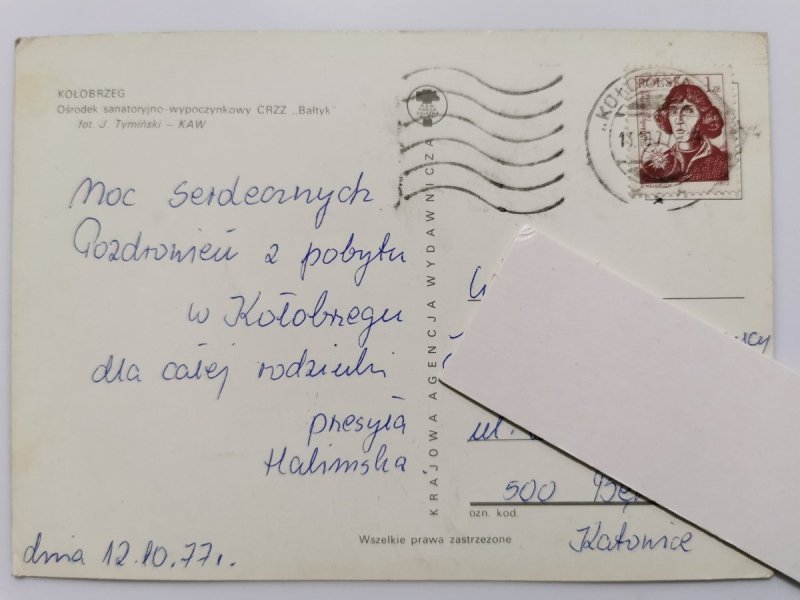 KOŁOBRZEG
Ośrodek sanatoryjno-wypoczynkowy CRZZ „Bałtyk"
fot. J. Tymiński – KAW
Moc serdecznych
Pozdrowień z pobytu
w Kołobrzegu
dla całej rodzinki
presyła
Halinska.
dnia 12.10.77r.
KRAJOWA AGENCJA WYDAWNICZA
POLSKA 1zł
ul.
500
ozn. kod.
Katowice
Wszelkie prawa zastrzeżone